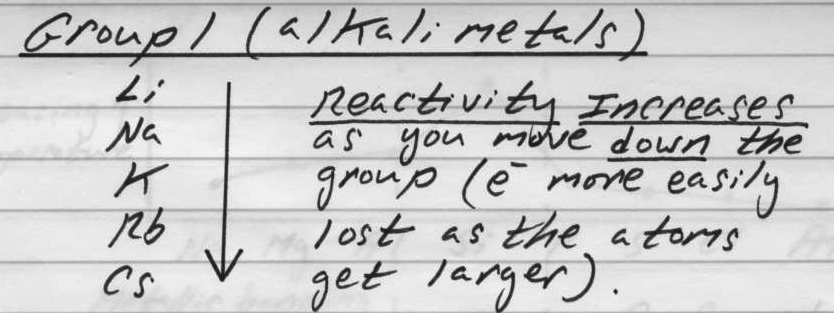 Group 1 (alkali metals)
Li
Na
K
Rb
Cs
Reactivity Increases
as you move down the
group (e⁻ more easily
lost as the atoms
get larger).